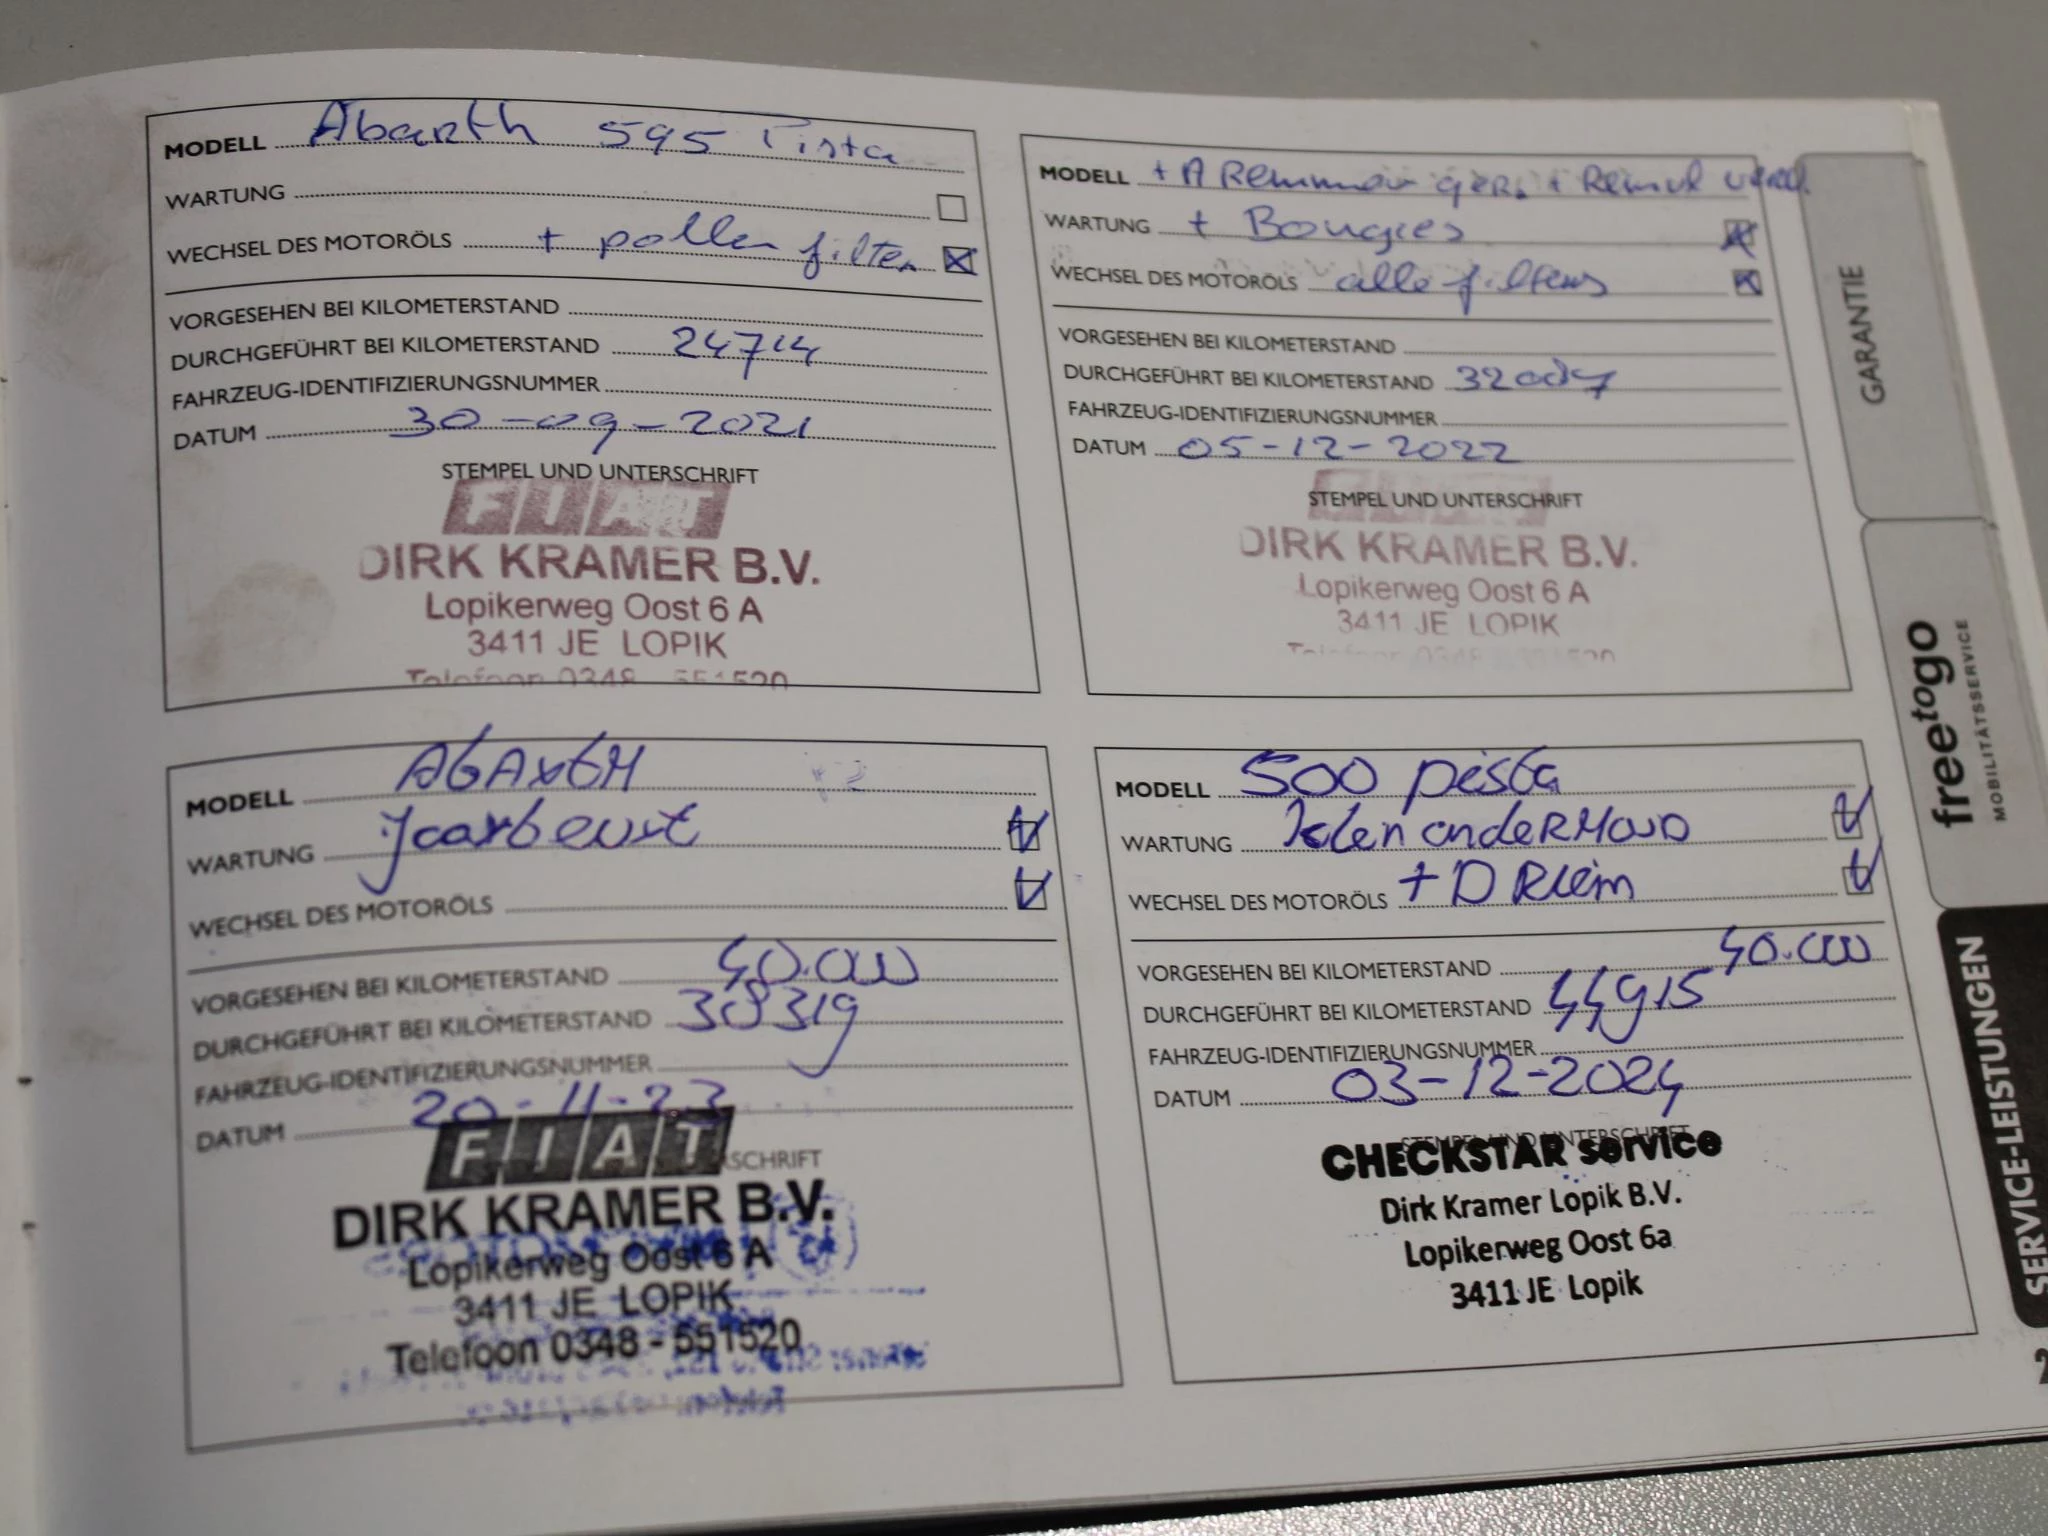 MODELL Abarth 595 Pista
WARTUNG
WECHSEL DES MOTORÖLS + pollen filter
VORGESEHEN BEI KILOMETERSTAND
DURCHGEFÜHRT BEI KILOMETERSTAND 24714
FAHRZEUG-IDENTIFIZIERUNGSNUMMER
DATUM 30-09-2021
STEMPEL UND UNTERSCHRIFT
FIAT
DIRK KRAMER B.V.
Lopikerweg Oost 6 A
3411 JE LOPIK
Telefoon 0348 - 551520
MODELL + A Remmen ger. +
WARTUNG + Bougies
WECHSEL DES MOTORÖLS alle filters
VORGESEHEN BEI KILOMETERSTAND
DURCHGEFÜHRT BEI KILOMETERSTAND
FAHRZEUG-IDENTIFIZIERUNGSNUMMER
DATUM 05-12-2022
STEMPEL UND UNTERSCHRIFT
DIRK KRAMER B.V.
Lopikerweg Oost 6 A
3411 JE LOPIK
Telefoon 0348 551520
MODELL AbArtH
WARTUNG Jaarbeurt
WECHSEL DES MOTORÖLS
VORGESEHEN BEI KILOMETERSTAND 40.000
DURCHGEFÜHRT BEI KILOMETERSTAND 38319
FAHRZEUG-IDENTIFIZIERUNGSNUMMER
DATUM 20-11-23
FIAT
DIRK KRAMER B.V.
Lopikerweg Oost 6 A
3411 JE LOPIK
Telefoon 0348 - 551520
MODELL 500 pista
WARTUNG klein onderHOUD
WECHSEL DES MOTORÖLS + D Riem
VORGESEHEN BEI KILOMETERSTAND 40.000
DURCHGEFÜHRT BEI KILOMETERSTAND 44915
FAHRZEUG-IDENTIFIZIERUNGSNUMMER
DATUM 03-12-2024
STEMPEL UND UNTERSCHRIFT
CHECKSTAR service
Dirk Kramer Lopik B.V.
Lopikerweg Oost 6a
3411 JE Lopik
GARANTIE
freetogo
MOBILITÄTSSERVICE
SERVICE-LEISTUNGEN